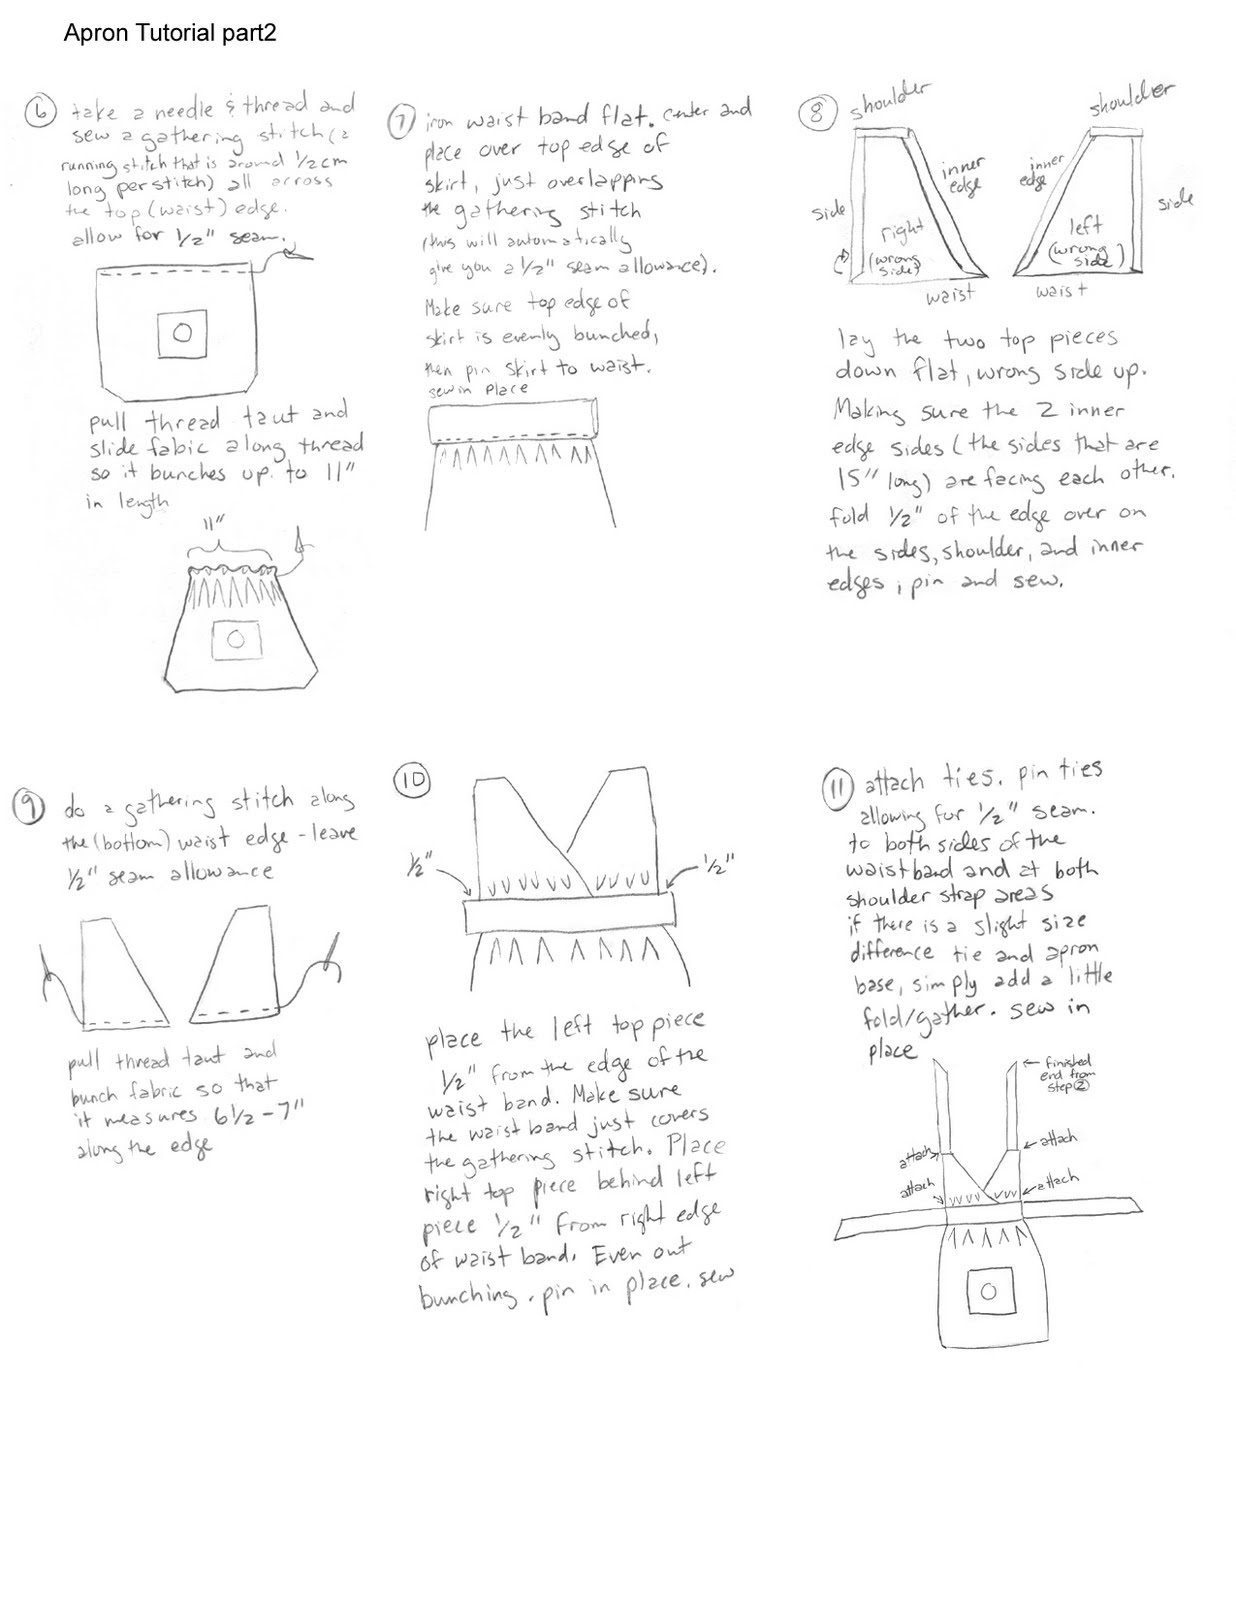 Apron Tutorial part2
6 take a needle & thread and
sew a gathering stitch (a
running stitch that is around 1/2 cm
long per stitch) all across
the top (waist) edge.
allow for 1/2" seam.
pull thread taut and
slide fabic along thread
so it bunches up to 11"
in length
11"
7 iron waist band flat. center and
place over top edge of
skirt, just overlapping
the gathering stitch
(this will automatically
give you a 1/2" seam allowance).
Make sure top edge of
skirt is evenly bunched,
then pin skirt to waist.
sew in place
8
shoulder
shoulder
inner
edge
inner
edge
side
side
right
(wrong
side)
left
(wrong
side)
waist
waist
lay the two top pieces
down flat, wrong side up.
Making sure the 2 inner
edge sides (the sides that are
15" long) are facing each other.
fold 1/2" of the edge over on
the sides, shoulder, and inner
edges, pin and sew.
9 do a gathering stitch along
the (bottom) waist edge - leave
1/2" seam allowance
pull thread taut and
bunch fabric so that
it measures 6 1/2 - 7"
along the edge
10
1/2"
1/2"
place the left top piece
1/2" from the edge of the
waist band. Make sure
the waist band just covers
the gathering stitch. Place
right top piece behind left
piece 1/2" from right edge
of waist band. Even out
bunching, pin in place. sew
11 attach ties. pin ties
allowing for 1/2" seam.
to both sides of the
waistband and at both
shoulder strap areas
if there is a slight size
difference tie and apron
base, simply add a little
fold/gather. sew in
place
finished
end from
step 2
attach
attach
attach
attach